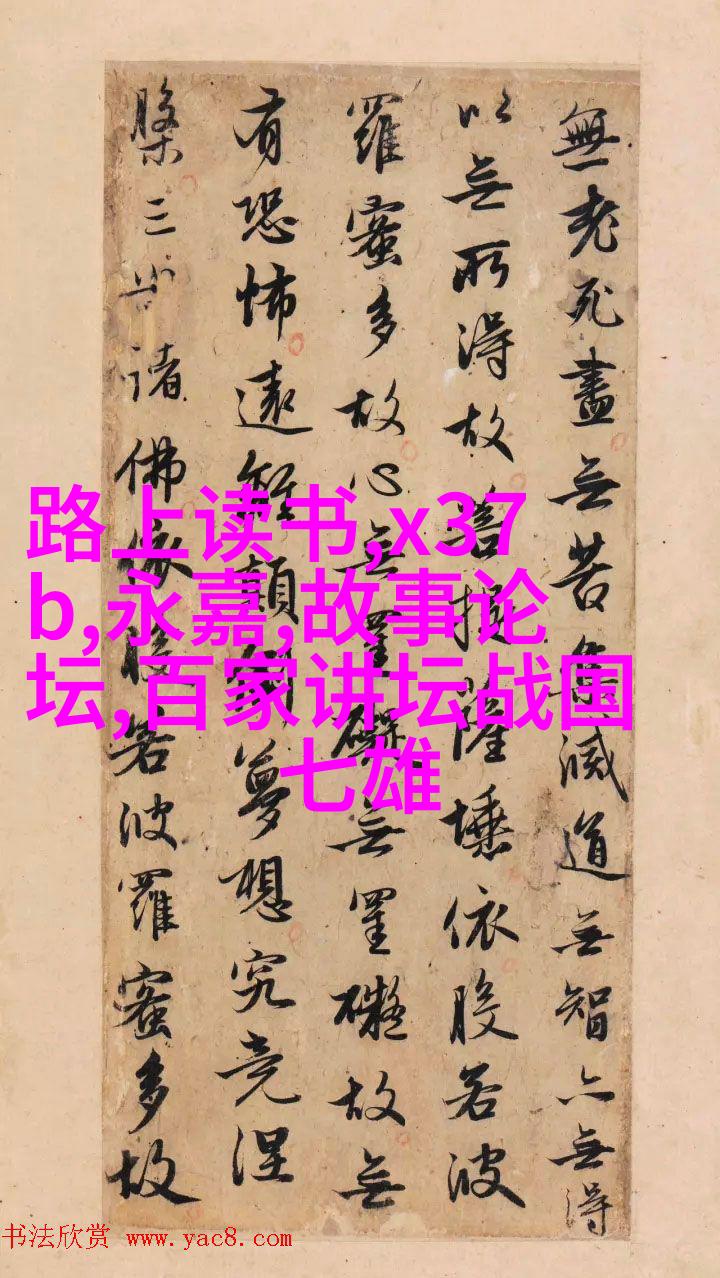 無老死盡無苦集滅道無智亦無得
以無所得故菩提薩埵依般若波
羅蜜多故心無罣礙無罣礙故無
有恐怖遠離顛倒夢想究竟涅
槃三世諸佛依般若波羅蜜多故
路上读书,x37
b,永嘉,故事论
坛,百家讲坛战国
七雄
书法欣赏 www.yac8.com